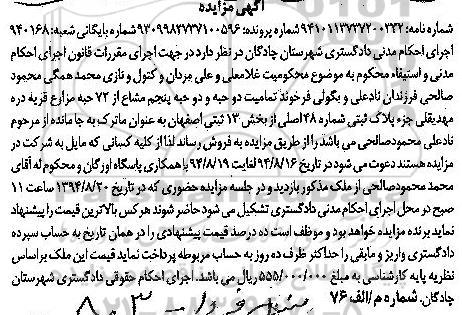 آگهی مزایده
شماره نامه: ۹۴۱۰۱۱۳۷۳۷۲۰۰۲۳۲ شماره پرونده: ۹۳۰۹۹۸۲۷۳۷۱۰۰۵۹۶ شماره بایگانی شعبه: ۹۴۰۱۶۸
اجرای احکام مدنی دادگستری شهرستان چادگان در نظر دارد در جهت اجرای مقررات قانون اجرای احکام
مدنی و استیفاء محکوم به موضوع محکومیت غلامعلی و علی مردان و کتول و نازی محمد همگی محمود
صالحی فرزندان نادعلی و بگولی فرخوند تمامیت دو حبه و دو حبه پنجم مشاع از ۷۲ حبه مزارع قریه دره
مهدیقلی جزء پلاک ثبتی شماره ۴۸ اصلی از بخش ۱۳ ثبتی اصفهان به عنوان ماترک به جا مانده از مرحوم
نادعلی محمودصالحی می باشد را از طریق مزایده به فروش رساند لذا از کلیه کسانی که مایل به شرکت در
مزایده هستند دعوت می شود در تاریخ ۹۴/۸/۱۶ لغایت ۹۴/۸/۱۹ با همکاری پاسگاه اورگان و محکوم له آقای
محمد محمودصالحی از ملک مذکور بازدید و در جلسه مزایده حضوری که در تاریخ ۱۳۹۴/۸/۲۰ ساعت ۱۱
صبح در محل اجرای احکام مدنی دادگستری تشکیل می شود حاضر شوند هر کس بالاترین قیمت را پیشنهاد
نماید برنده مزایده خواهد بود و موظف است ده درصد قیمت پیشنهادی را در همان تاریخ به حساب سپرده
دادگستری واریز و مابقی را حداکثر ظرف ده روز به حساب مربوطه پرداخت نماید قیمت این ملک براساس
نظریه پایه کارشناسی به مبلغ ۵۵۵/۰۰۰/۰۰۰ ریال می باشد. اجرای احکام حقوقی دادگستری شهرستان
چادگان. شماره م/الف ۷۶